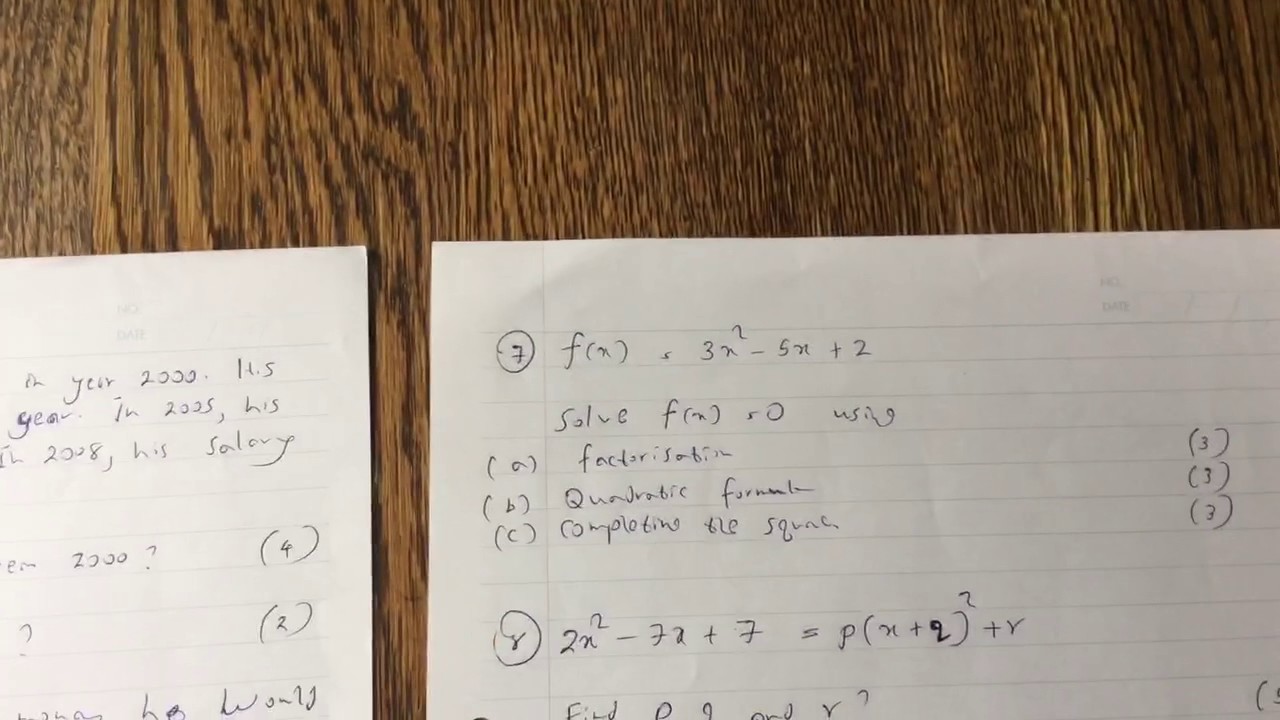 NO.
DATE
in year 2000. His
year. In 2005, his
In 2008, his salary
2000 ? (4)
? (2)
money he would
NO.
DATE / /
(7) f(x) = 3x² - 5x + 2
Solve f(x) = 0 using
(a) factorisation (3)
(b) Quadratic formula (3)
(c) completing the square (3)
(8) 2x² - 7x + 7 = p(x+q)² + r
Find p q and r ?